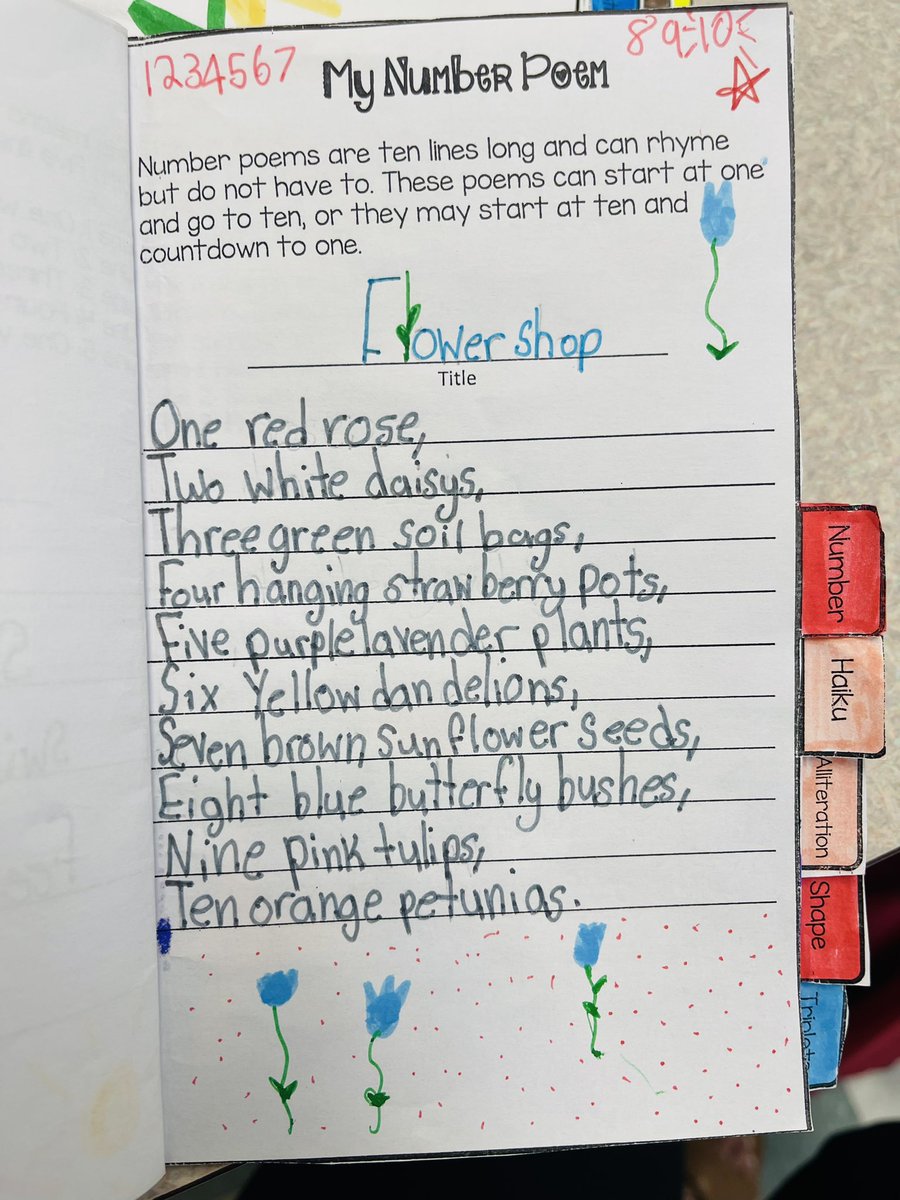 1234567
8 9 10
My Number Poem
Number poems are ten lines long and can rhyme
but do not have to. These poems can start at one
and go to ten, or they may start at ten and
countdown to one.
Flower shop
Title
One red rose,
Two white daisys,
Three green soil bags,
Four hanging strawberry pots,
Five purple lavender plants,
Six Yellow dandelions,
Seven brown sunflower seeds,
Eight blue butterfly bushes,
Nine pink tulips,
Ten orange petunias.
Number
Haiku
Alliteration
Shape